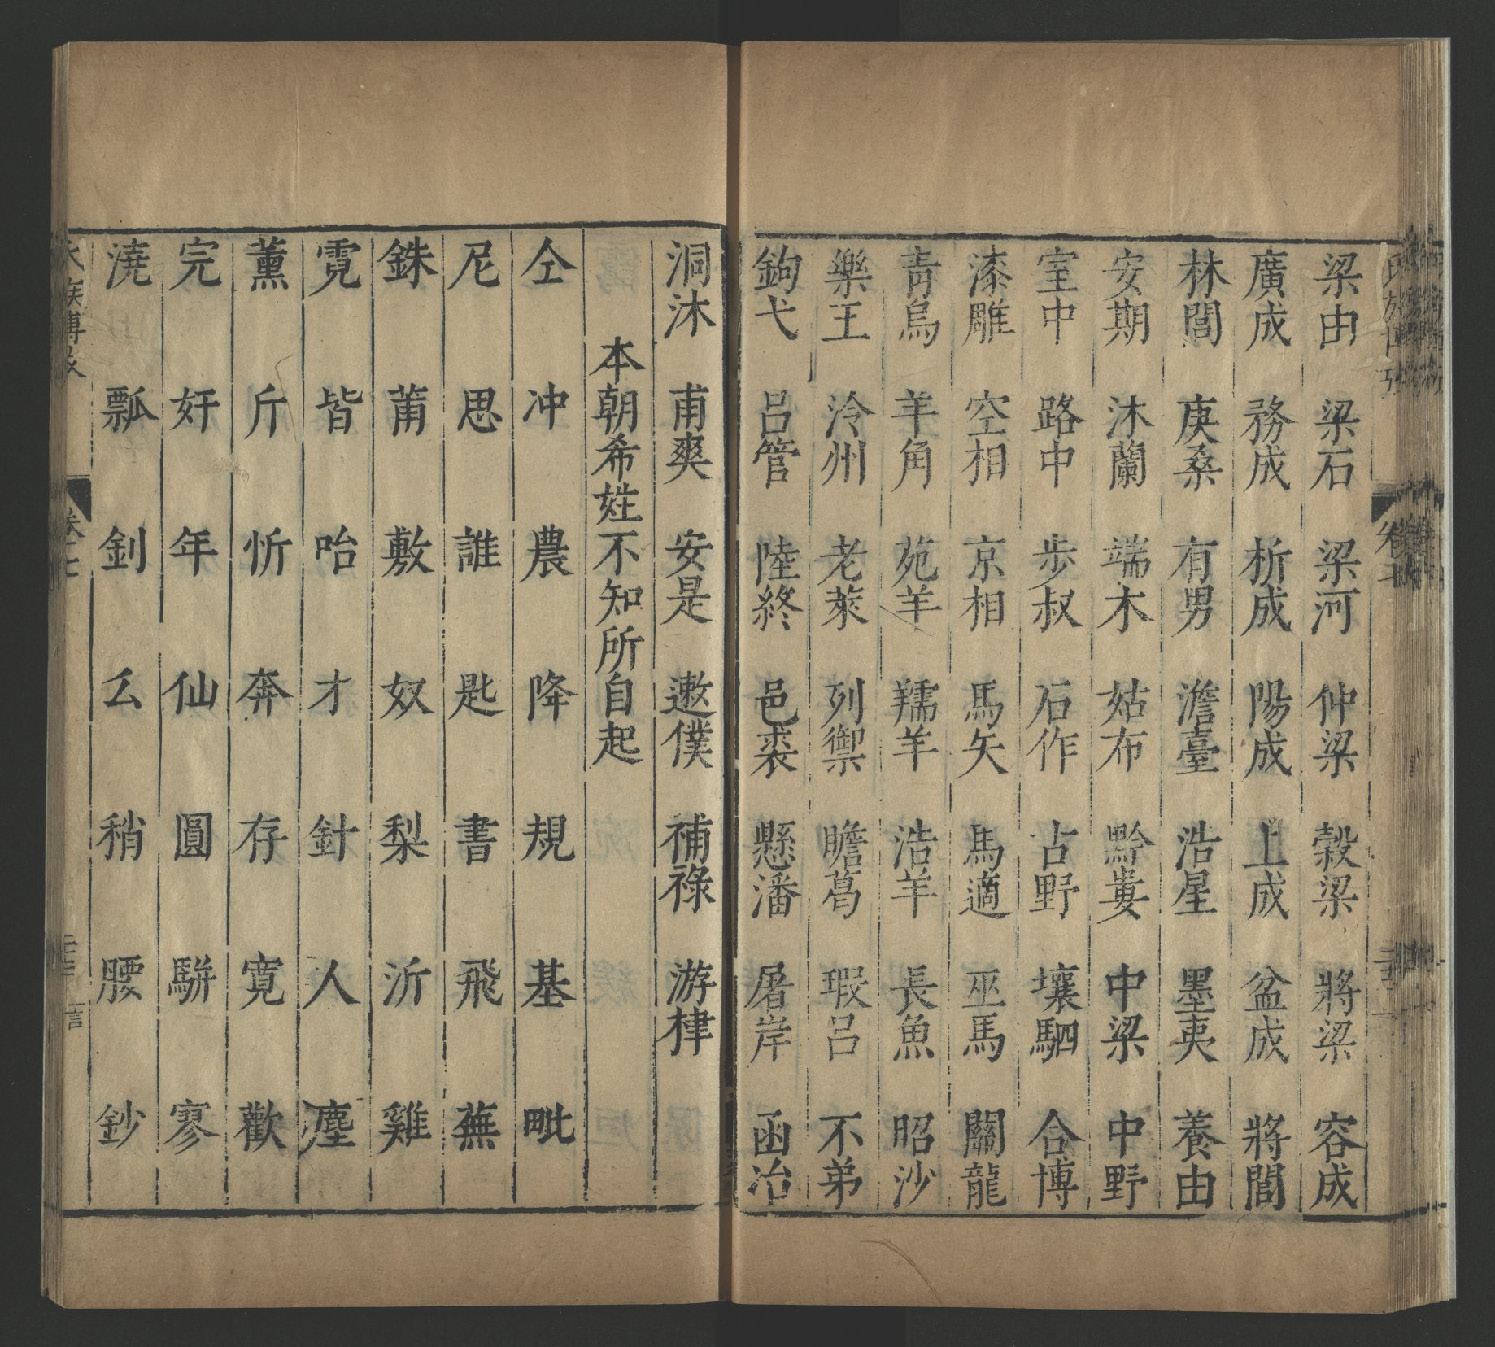 梁由 梁石 梁河 仲梁 穀梁 將梁 容成
廣成 務成 析成 陽成 上成 盆成 將閭
林閭 庚桑 有男 澹臺 浩星 墨夷 養由
安期 沐蘭 端木 姑布 黔婁 中梁 中野
室中 路中 步叔 石作 占野 壤駟 合博
漆雕 空相 京相 馬矢 馬適 巫馬 關龍
青烏 羊角 苑羊 羺羊 浩羊 長魚 昭沙
樂王 泠州 老萊 列禦 瞻葛 瑕呂 不弟
鉤弋 呂管 陸終 邑裘 懸潘 屠岸 函冶
洞沐 甫爽 安是 遬僕 補祿 游棣
本朝希姓不知所自起
仝 冲 農 降 規 基 毗
尼 思 誰 匙 書 飛 蕪
銖 莆 敷 奴 梨 沂 雞
霓 皆 咍 才 針 人 塵
薰 斤 忻 奔 存 寬 歡
完 奸 年 仙 圓 駢 寥
澆 瓢 釗 幺 稍 腰 鈔